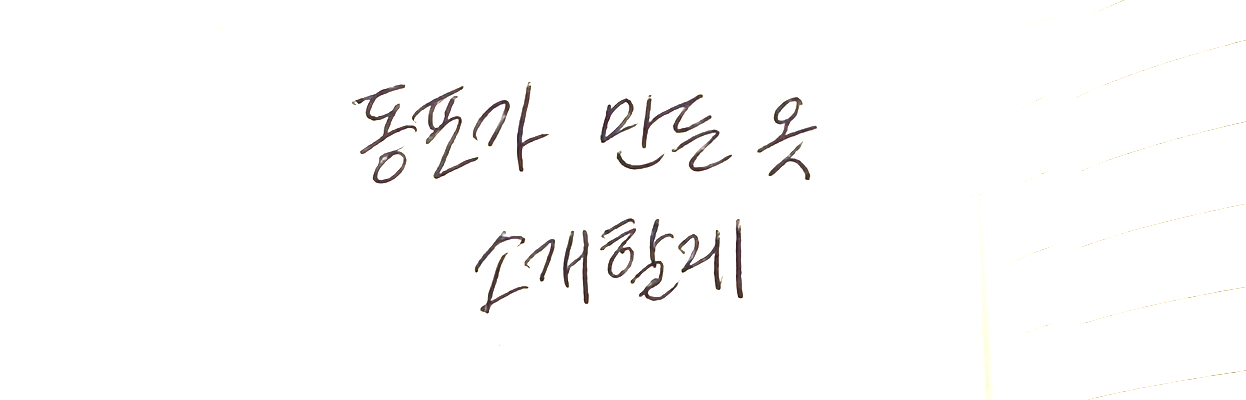 동포가 만든 옷
소개할게